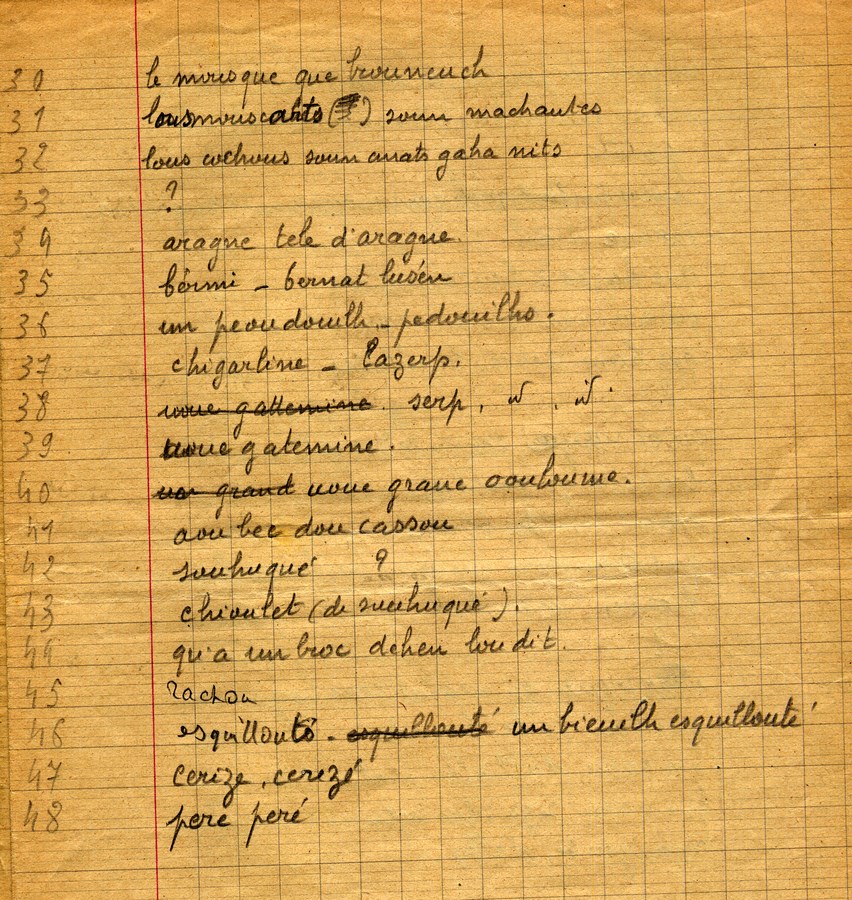 30 le mousque que brouneuch
31 lous mouscarts ( ) soun machantes
32 lous cochous soun anats gaha nits
33 ?
34 aragne tele d'aragne.
35 bérmi - bernat lusén
36 un peoudouilh - pedouilhs.
37 chigarline - Lazerp.
38 uoue gattemine. serp,
39 uoue gatemine.
40 un grand uoue grane couloume.
41 aou bec dou cassou
42 souhuqué ?
43 chioulet (de souhuqué).
44 qu'a un broc dehen lou dit.
45 rachou
46 esquillouté - esquillouté un bieuilh esquillouté
47 cerize, cerezé
48 pere peré